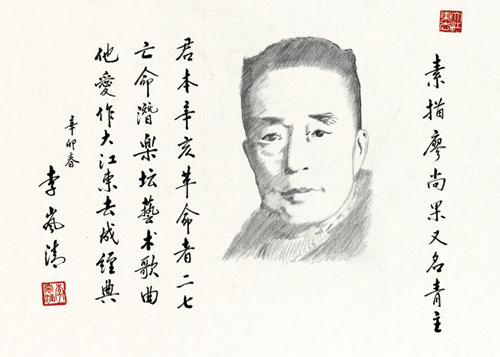 素描廖尚果又名青主
君本辛亥革命者二七
亡命潛樂坛藝术歌曲
他愛作大江東去成經典
辛卯春
李嵐清